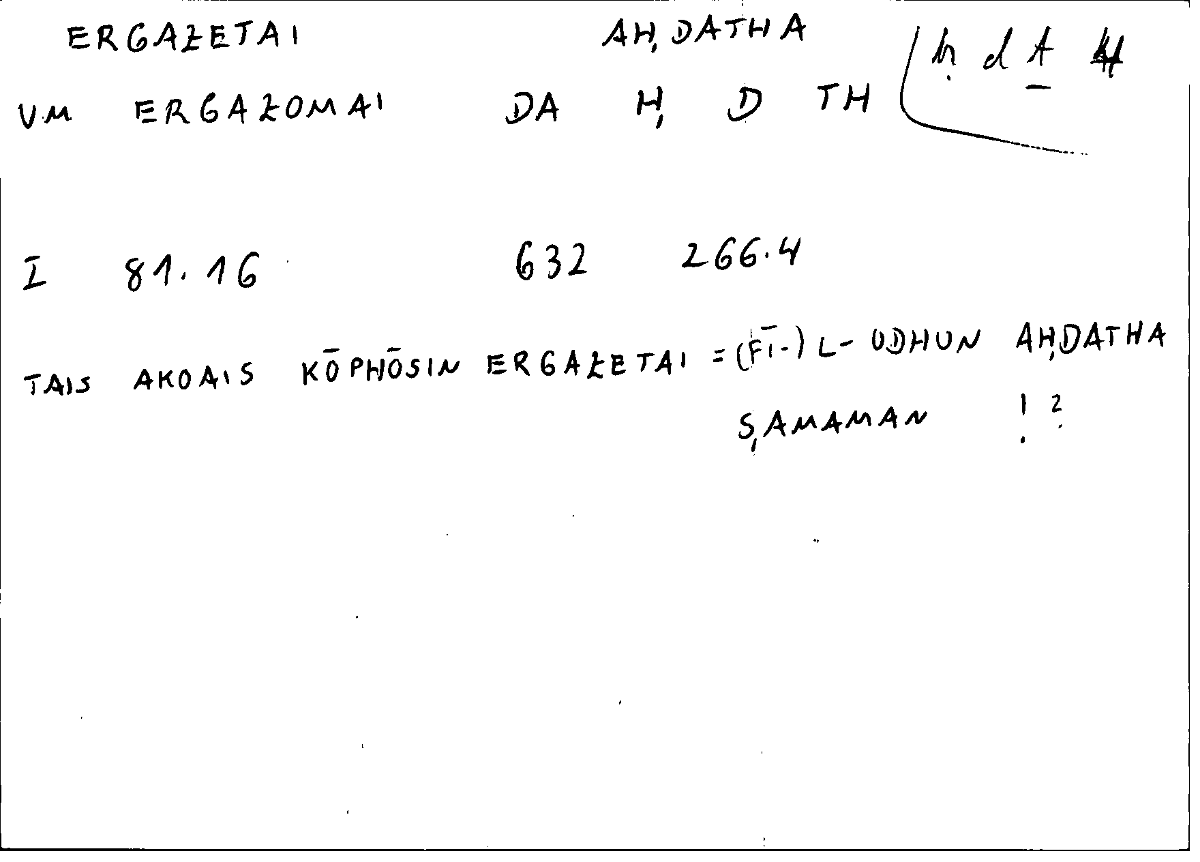 ERGAƵETAI AḤDATHA
VM ERGAƵOMAI DA Ḥ D TH ḥ d t
I 81.16 632 266.4
TAIS AKOAIS KŌPHŌSIN ERGAƵETAI = (FĪ-) L-UDHUN AḤDATHA
ṢAMAMAN !?